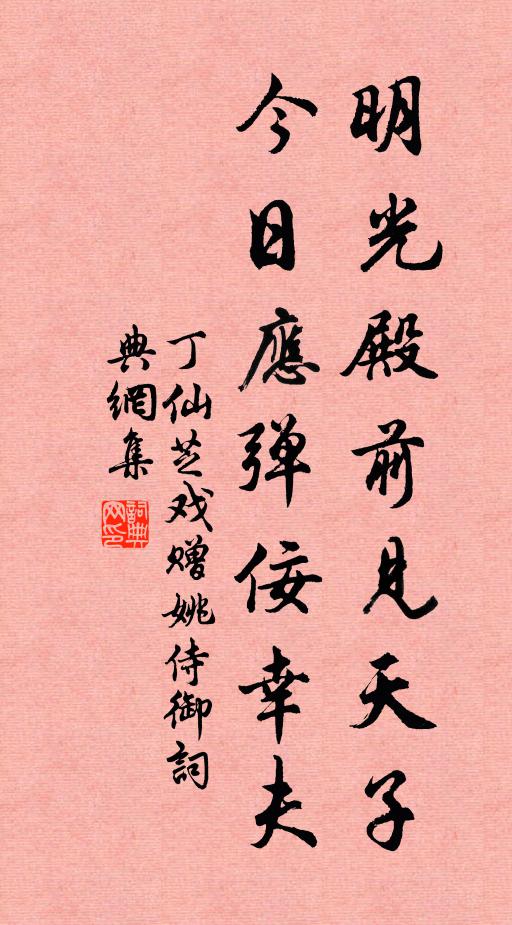 明光殿前見天子
今日應弹佞幸夫
丁仙芝戏赠姚侍御詞
典網集
詞典网印